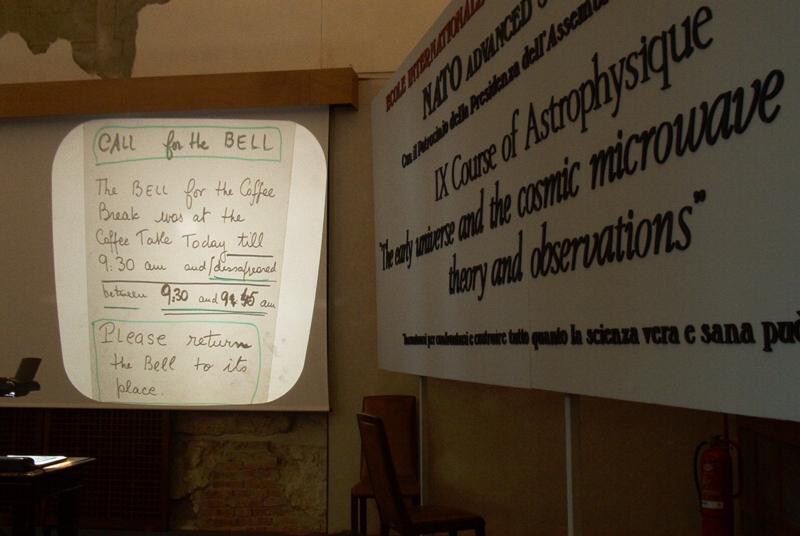 CALL for the BELL
The BELL for the Coffee
Break was at the
Coffee Table Today till
9:30 am and dissappeared
between 9,30 and 9,45 am
Please return
the Bell to its
place.
ECOLE INTERNATIONALE
NATO ADVANCED
Con il Patrocinio della Presidenza dell'Assemb
IX Course of Astrophysique
"The early universe and the cosmic microwave
theory and observations"
e costruire tutto quanto la scienza vera e sana può